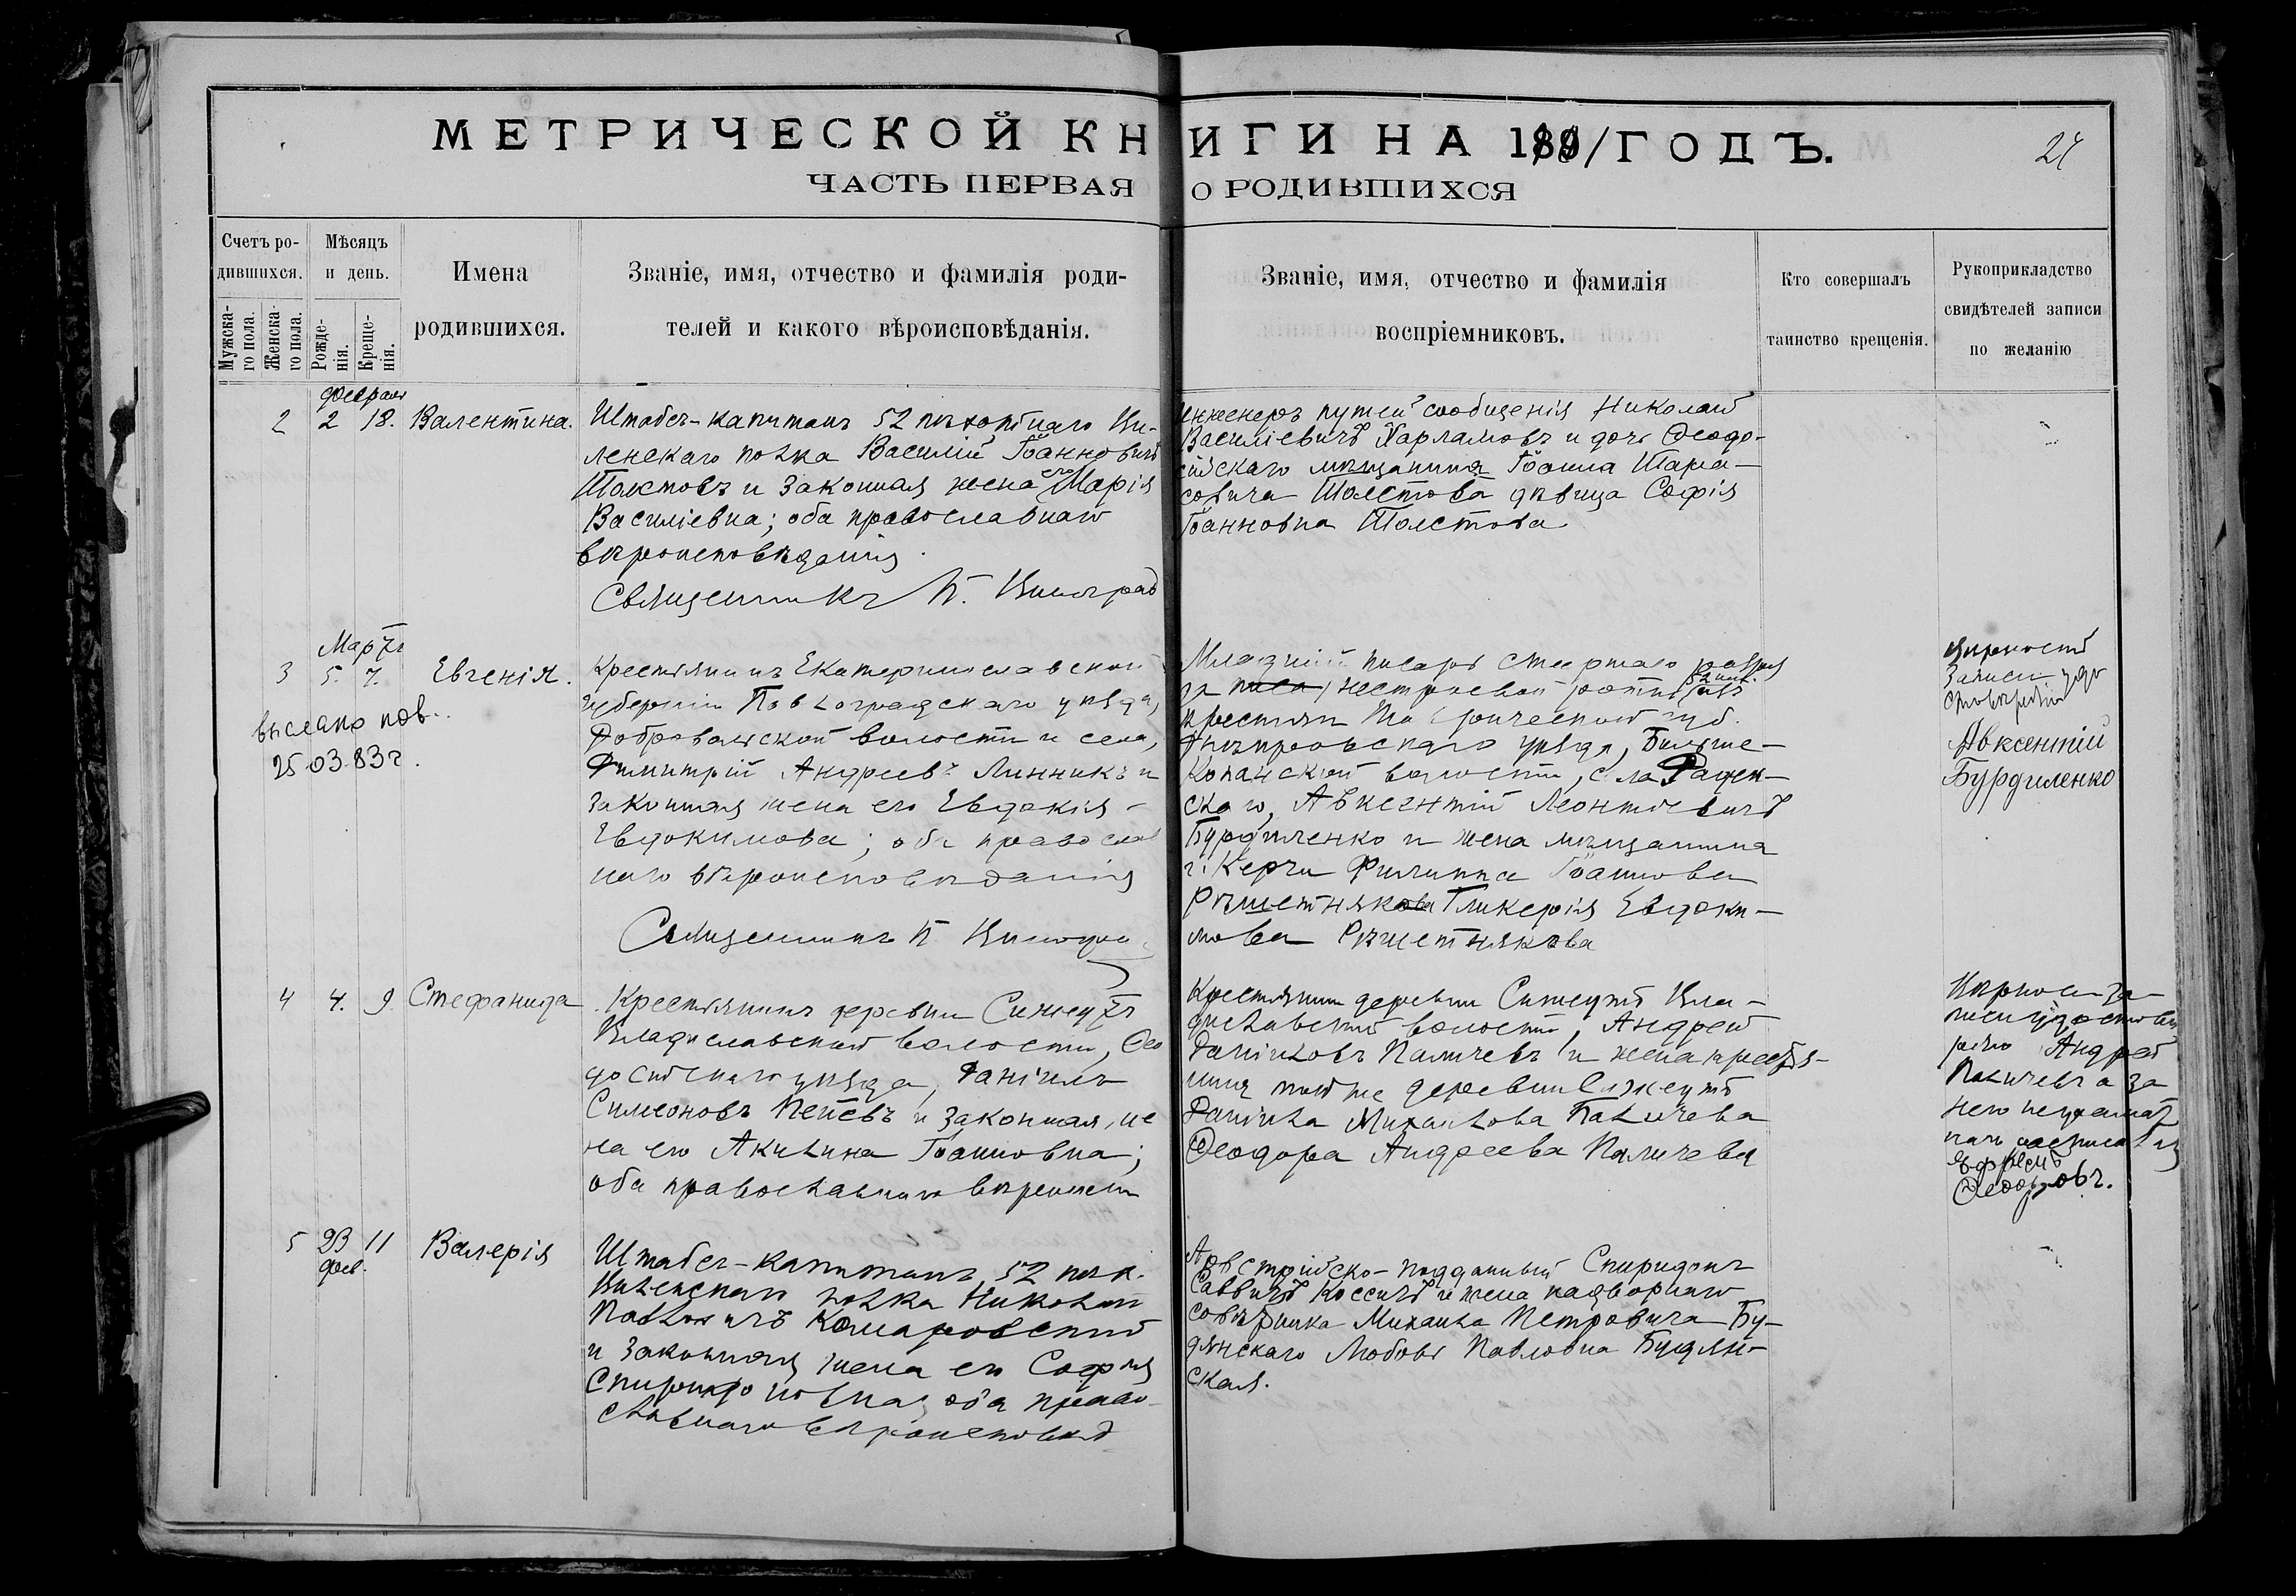 МЕТРИЧЕСКОЙ КНИГИ НА 189/ ГОДЪ.
24
ЧАСТЬ ПЕРВАЯ О РОДИВШИХСЯ
Счетъ ро-
дившихся.
Мужска-
го пола.
Женска-
го пола.
Мѣсяцъ
и день.
Рожде-
нія.
Креще-
нія.
Имена
родившихся.
Званіе, имя, отчество и фамилія роди-
телей и какого вѣроисповѣданія.
Званіе, имя, отчество и фамилія
воспріемниковъ.
Кто совершалъ
таинство крещенія.
Рукоприкладство
свидѣтелей записи
по желанію
Февраля
2 2 18. Валентина.
Штабсъ-капитанъ 52 пѣхотнаго Ви-
ленскаго полка Василій Іоанновичъ
Толстовъ и законная жена его Марія
Василіевна; оба православнаго
вѣроисповѣданія.
Священникъ П. Виноград
Инженеръ путей сообщенія Николай
Василіевичъ Харламовъ и дочь Ѳеодо-
сійскаго мѣщанина Іоанна Тара-
совича Толстова дѣвица Софія
Іоанновна Толстова
Мартъ
3 5. 7. Евгенія.
выслано пов.
25 03.83г.
Крестьянинъ Екатеринославской
губерніи Павлоградскаго уѣзда,
Добровольской волости и села,
Димитрій Андреевъ Линникъ и
законная жена его Евдокія
Евдокимова; оба православ
наго вѣроисповѣданія
Священникъ П. Виноград
Младшій писарь старшаго разряд
нестроевой роты изъ
крестьян Таврической губ.
Днѣпровскаго уѣзда, Больше-
Копанской волости, села Раден-
скаго, Авксентій Леонтіевичъ
Бурдиленко и жена мѣщанина
г. Керчи Филиппа Іоаннова
Рѣшетнякова Гликерія Евдоки-
мова Рѣшетнякова
вѣрность
записи удо
стовѣряю
Авксентій
Бурдиленко
4 4. 9. Стефанида
Крестьянинъ деревни Синеутъ
Владиславской волости, Ѳео
досійскаго уѣзда, Даніилъ
Симеоновъ Пепевъ и законная же
на его Акилина Іоанновна;
оба православнаго вѣроиспов
Крестьянин деревни Синеутъ Вла-
диславской волости, Андрей
Даніиловъ Паличевъ и жена крестья-
нина той же деревни Синеутъ
Даніила Михаилова Паличева
Ѳеодора Андреева Паличева
Вѣрность за-
писи удостовѣ
ряю Андрей
Паличевъ а за
него неграмот
наго росписался
Ефремъ
Ѳеодоровъ.
5 23 11 Валерія
фев.
Штабсъ-капитанъ 52 пѣх.
Виленскаго полка Николай
Павловичъ Комаровскій
и законная жена его Софія
Спиридоновна; оба право-
славнаго вѣроисповѣд
Австрійско-подданный Спиридонъ
Саввичъ Коссичъ и жена надворнаго
совѣтника Михаила Петровича Бу-
дянскаго Любовь Павловна Будян-
ская.